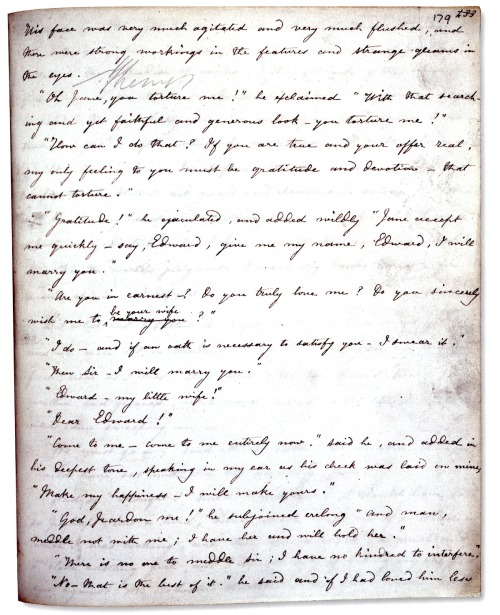 179 433
His face was very much agitated and very much flushed, and
there were strong workings in the features and strange gleams in
the eyes.
"Oh Jane, you torture me!" he exclaimed "With that search-
ing and yet faithful and generous look - you torture me!"
"How can I do that? If you are true and your offer real,
my only feeling to you must be gratitude and devotion - that
cannot torture."
"Gratitude!" he ejaculated, and added wildly "Jane accept
me quickly - say, Edward, give me my name, Edward, I will
marry you."
Are you in earnest -? Do you truly love me? Do you sincerely
wish me to be your wife ?"
"I do - and if an oath is necessary to satisfy you - I swear it."
"Then Sir - I will marry you."
"Edward - my little wife!"
"Dear Edward!"
"Come to me - come to me entirely now." said he, and added in
his deepest tone, speaking in my ear as his cheek was laid on mine,
"Make my happiness - I will make yours."
"God, pardon me!" he subjoined "and man,
meddle not with me; I have her and will hold her."
"There is no one to meddle Sir; I have no kindred to interfere."
"No - that is the best of it." he said and if I had loved him less